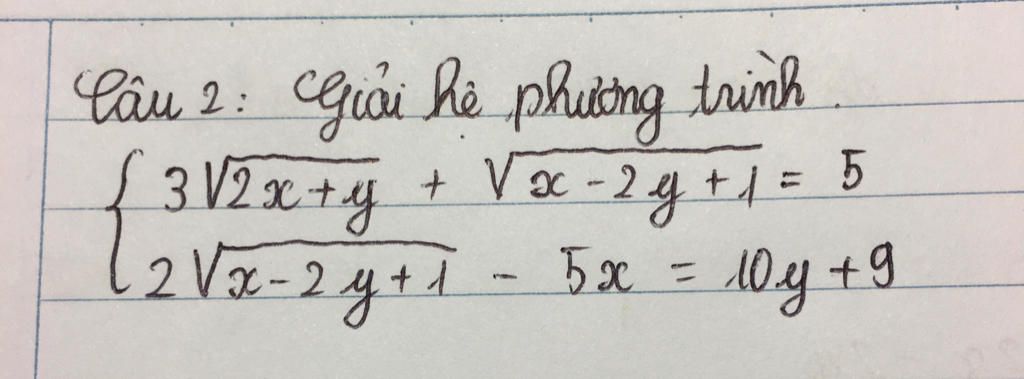 Câu 2: Giải hệ phương trình.
{ 3√(2x+y) + √(x-2y+1) = 5
2√(x-2y+1) - 5x = 10y+9